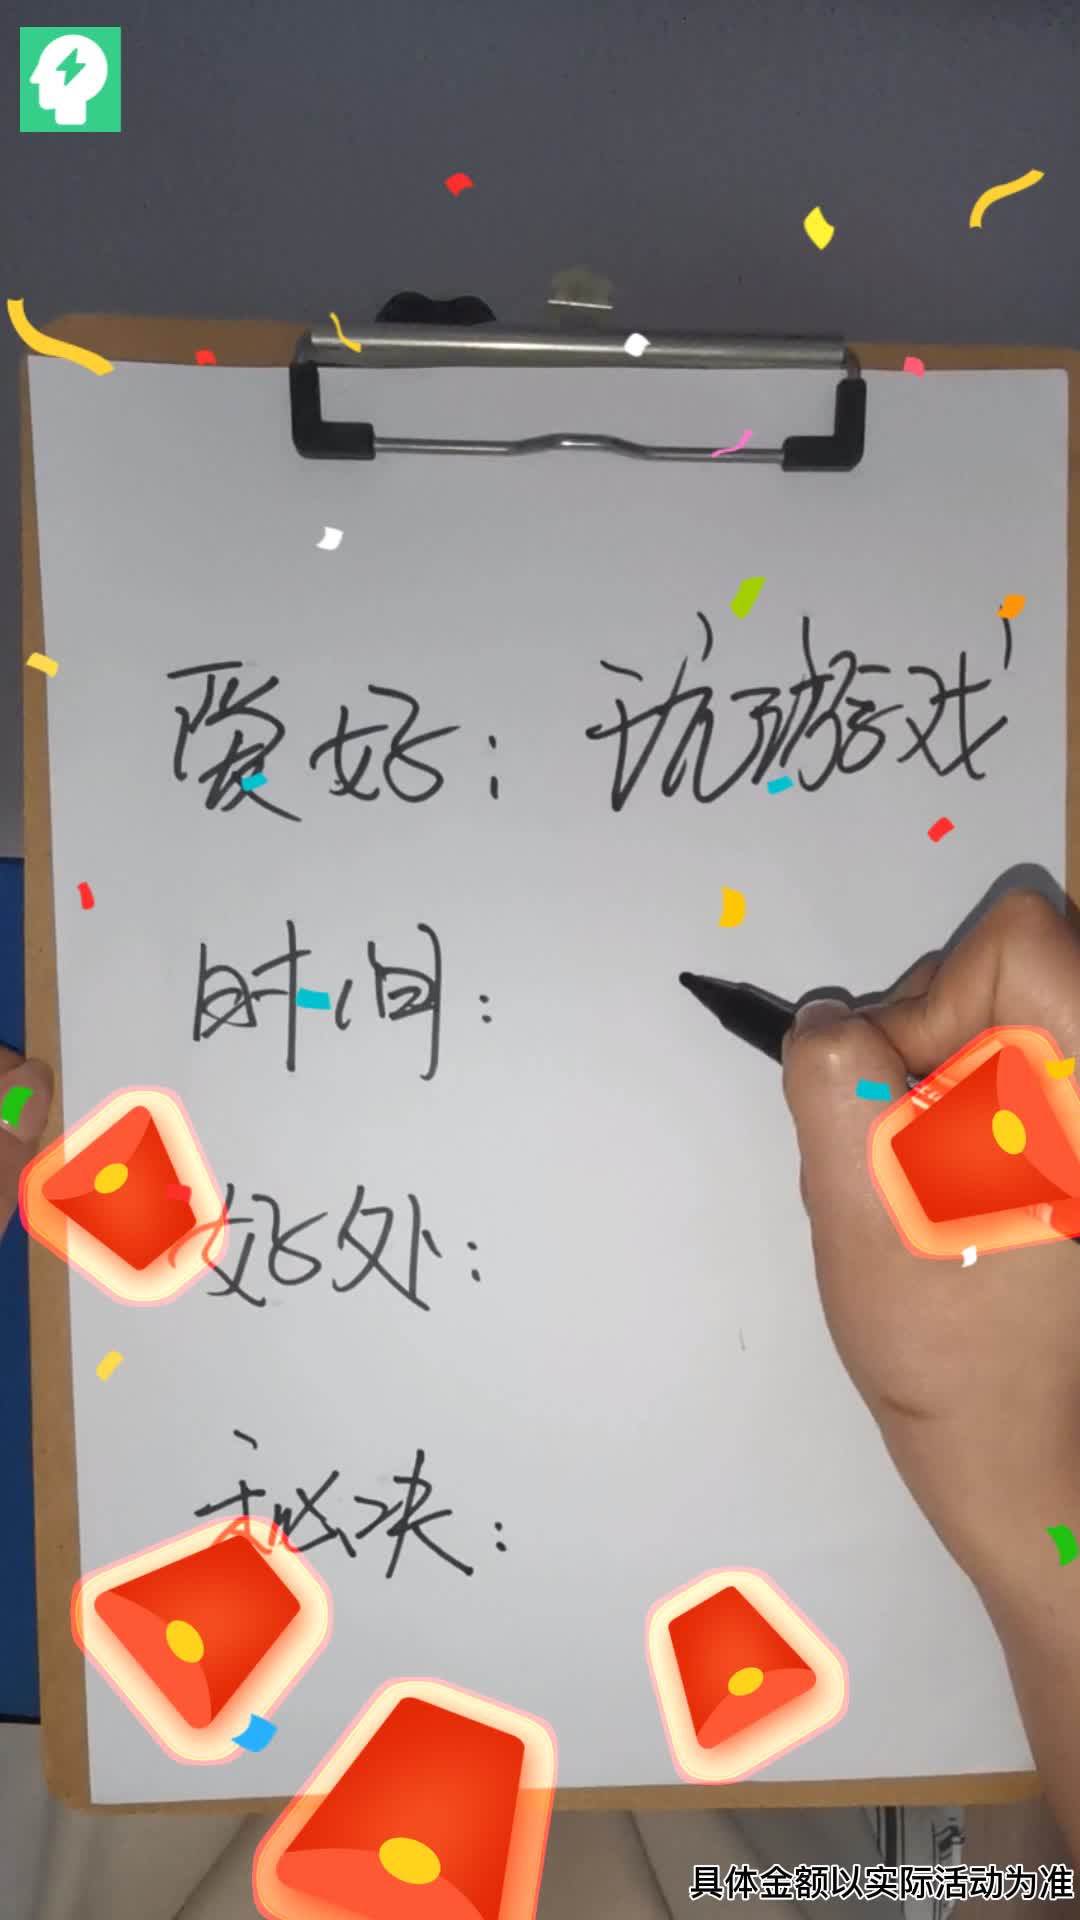 爱好：玩游戏
时间：
好处：
秘诀：
具体金额以实际活动为准